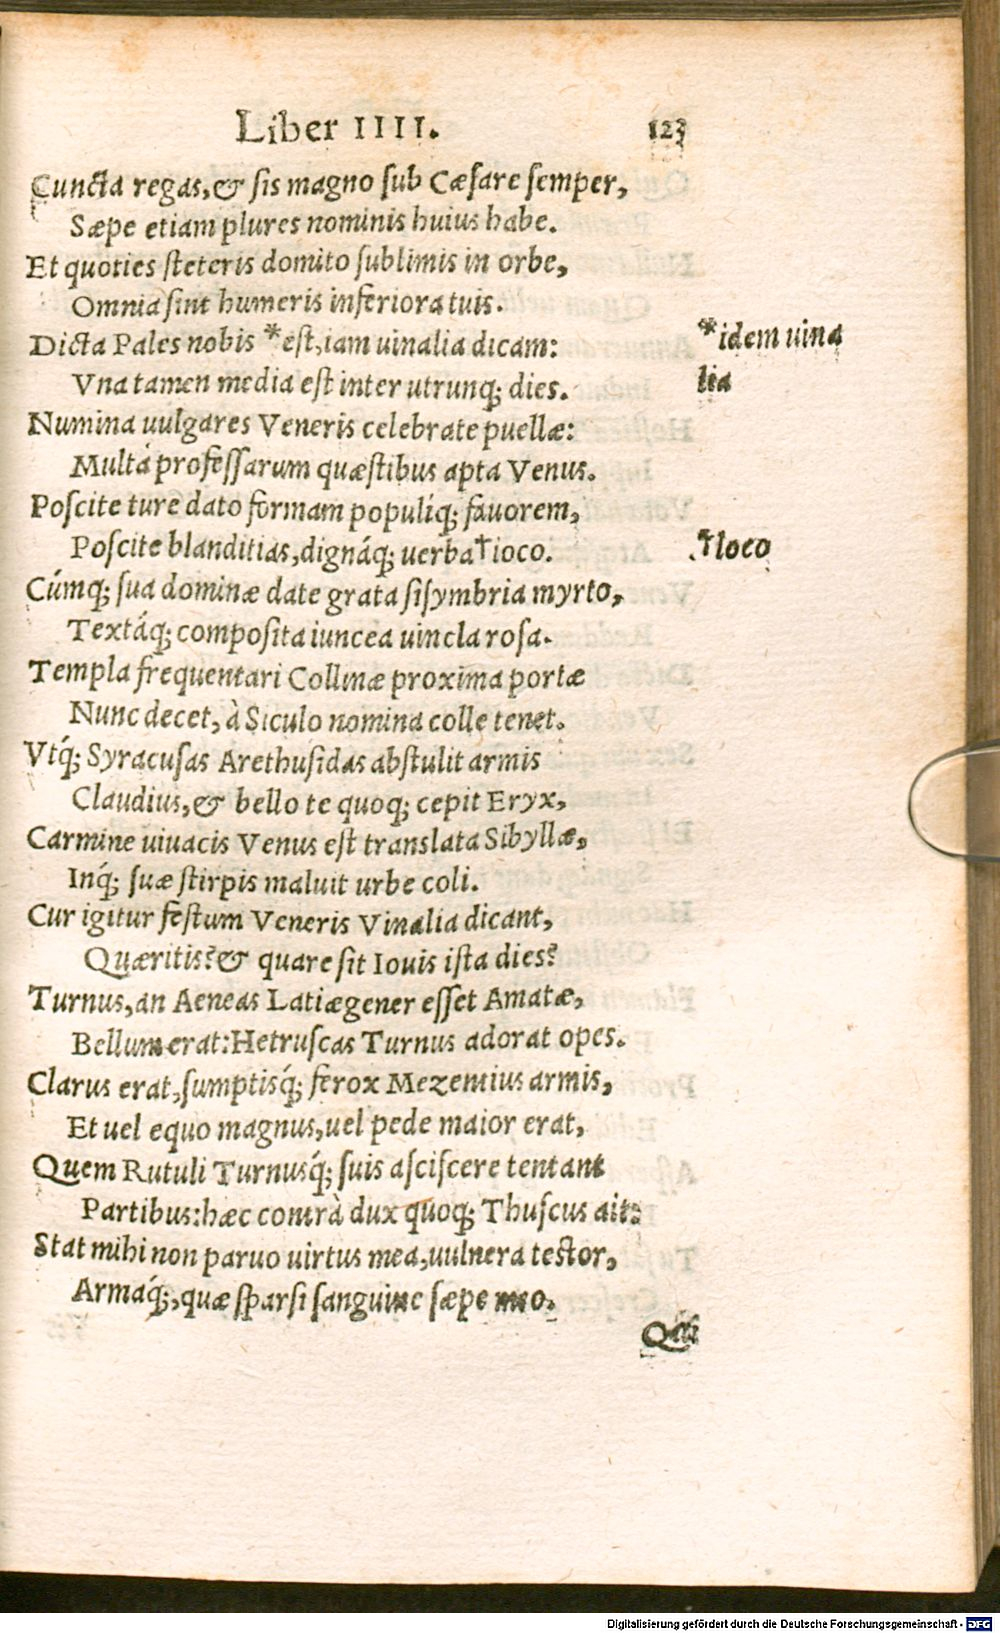 Liber IIII. 123
Cuncta regas,& sis magno sub Cæsare semper,
Sæpe etiam plures nominis huius habe.
Et quoties steteris domito sublimis in orbe,
Omnia sint humeris inferiora tuis.
Dicta Pales nobis *est,iam uinalia dicam:
*idem uina
lia
Vna tamen media est inter utrunq; dies.
Numina uulgares Veneris celebrate puellæ:
Multa professarum quæstibus apta Venus.
Poscite ture dato formam populiq́; fauorem,
Poscite blanditias,dignáq; uerba†ioco.
†loco
Cúmq; sua dominæ date grata sisymbria myrto,
Textáq; composita iuncea uincla rosa.
Templa frequentari Collinæ proxima portæ
Nunc decet, à Siculo nomina colle tenet.
Vtq́; Syracusas Arethusidas abstulit armis
Claudius,& bello te quoq; cepit Eryx,
Carmine uiuacis Venus est translata Sibyllæ,
Inq́; suæ stirpis maluit urbe coli.
Cur igitur festum Veneris Vinalia dicant,
Quæritis?& quare sit Iouis ista dies?
Turnus,an Aeneas Latiægener esset Amatæ,
Bellum erat:Hetruscas Turnus adorat opes.
Clarus erat,sumptisq́; ferox Mezentius armis,
Et uel equo magnus,uel pede maior erat,
Quem Rutuli Turnusq́; suis asciscere tentant
Partibus:hæc contrà dux quoq; Thuscus ait:
Stat mihi non paruo uirtus mea,uulnera testor,
Armaq́;,quæ sparsi sanguine sæpe meo.
Qui
Digitalisierung gefördert durch die Deutsche Forschungsgemeinschaft - DFG